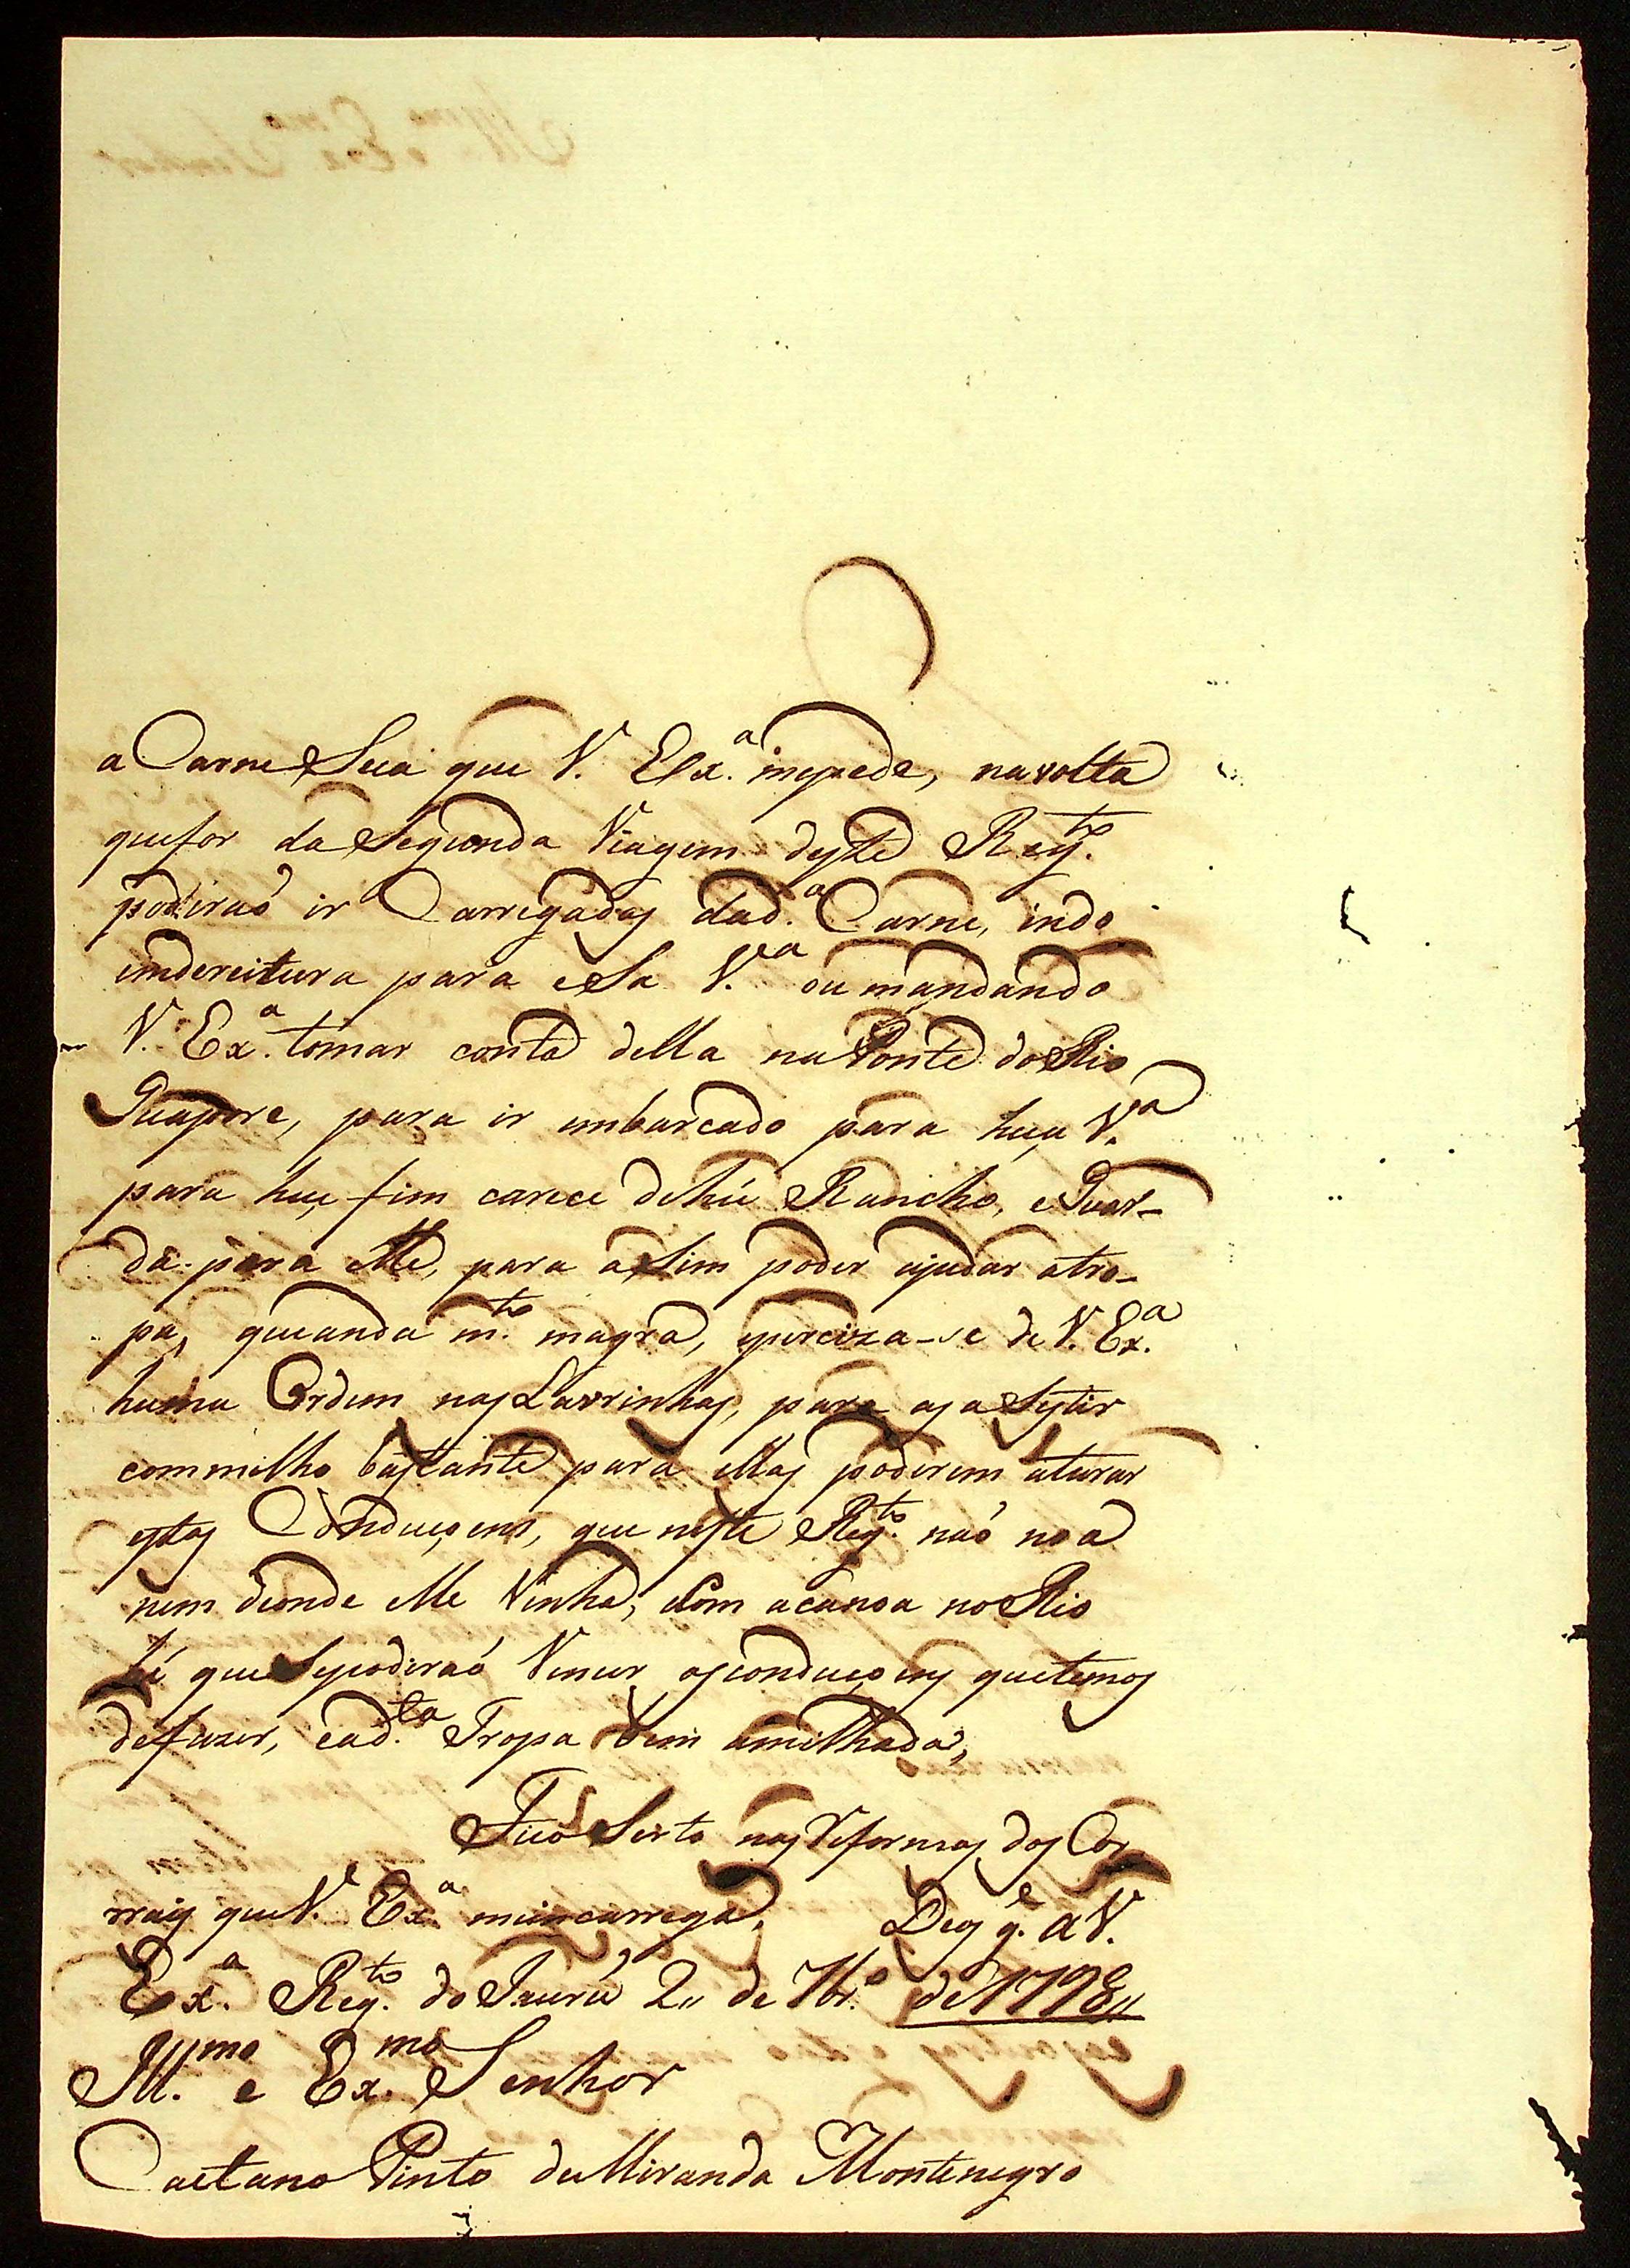 a Carne Seca que V. Ex.ª mepede, navolta
quefor da Segunda Viagem deste Reg.to
podiraó ir Carregadas dad.ª Carne, indo
imdereitura para esSa V.ª ou mandando
V. Ex.ª tomar conta della na Ponte do Rio
Guapore, para ir imbarcado para hea V.ª
para hue fim carece dehú Rancho, e Guar-
da para elle, para asSim poder ajudar atro-
pa, queanda m.to magra, eperciza-se de V. Ex.ª
huma Ordem nas Lavrinhas, para as aSestir
commilho bastante para ellas poderem aturar
estas Conduçoens, que neste Reg.to naó no a
nem deonde elle Vinha, Com acanoa no Rio
hé que Sepodiraó Vencer as conduçoins quetemos
defazer, ead.ta Tropa bem amilhada,
Fico Serto nas Reformas dos Cor
rrais que V. Ex.ª meincarrega, Deos g.e a V.
Ex.ª Reg.to do Jaurú 2,, de 7br.º de 1798,,
Ill.mo e Ex.mo Senhor
Caetano Pinto deMiranda Montenegro